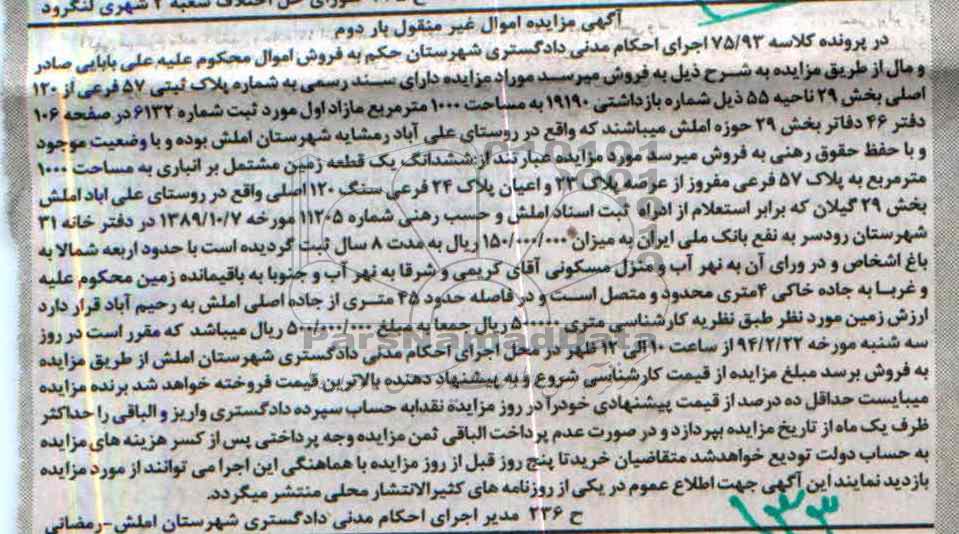 شورای حل اختلاف شعبه ۲ شهری لنگرود
آگهی مزایده اموال غیر منقول بار دوم
در پرونده کلاسه ۷۵/۹۳ اجرای احکام مدنی دادگستری شهرستان حکم به فروش اموال محکوم علیه علی بابایی صادر
و مال از طریق مزایده به شرح ذیل به فروش میرسد موراد مزایده دارای سند رسمی به شماره پلاک ثبتی ۵۷ فرعی از ۱۲۰
اصلی بخش ۲۹ ناحیه ۵۵ ذیل شماره بازداشتی ۱۹۱۹۰ به مساحت ۱۰۰۰ مترمربع مازاد اول مورد ثبت شماره ۶۱۳۲ در صفحه ۱۰۶
دفتر ۴۶ دفاتر بخش ۲۹ حوزه املش میباشند که واقع در روستای علی آباد رمشایه شهرستان املش بوده و با وضعیت موجود
و با حفظ حقوق رهنی به فروش میرسد مورد مزایده عبارتند از: ششدانگ یک قطعه زمین مشتمل بر انباری به مساحت ۱۰۰۰
مترمربع به پلاک ۵۷ فرعی مفروز از عرصه پلاک ۲۳ و اعیان پلاک ۲۴ فرعی سنگ ۱۲۰ اصلی واقع در روستای علی اباد املش
بخش ۲۹ گیلان که برابر استعلام از اداره ثبت اسناد املش و حسب رهنی شماره ۱۱۲۰۵ مورخه ۱۳۸۹/۱۰/۷ در دفتر خانه ۳۱
شهرستان رودسر به نفع بانک ملی ایران به میزان ۱۵۰/۰۰۰/۰۰۰ ریال به مدت ۸ سال ثبت گردیده است با حدود اربعه شمالا به
باغ اشخاص و در ورای آن به نهر آب و منزل مسکونی آقای کریمی و شرقا به نهر آب و جنوبا به باقیمانده زمین محکوم علیه
و غربا به جاده خاکی ۴متری محدود و متصل است و در فاصله حدود ۴۵ متری از جاده اصلی املش به رحیم آباد قرار دارد
ارزش زمین مورد نظر طبق نظریه کارشناسی متری ریال جمعا به مبلغ ۵۰۰/۰۰۰/۰۰۰ ریال میباشد که مقرر است در روز
سه شنبه مورخه ۹۴/۲/۲۲ از ساعت ۱۰ الی ۱۲ ظهر در محل اجرای احکام مدنی دادگستری شهرستان املش از طریق مزایده
به فروش برسد مبلغ مزایده از قیمت کارشناسی شروع و به پیشنهاد دهنده بالاترین قیمت فروخته خواهد شد برنده مزایده
میبایست حداقل ده درصد از قیمت پیشنهادی خودرا در روز مزایده نقدابه حساب سپرده دادگستری واریز و الباقی را حداکثر
ظرف یک ماه از تاریخ مزایده بپردازد و در صورت عدم پرداخت الباقی ثمن مزایده وجه پرداختی پس از کسر هزینه های مزایده
به حساب دولت تودیع خواهدشد متقاضیان خریدتا پنج روز قبل از روز مزایده با هماهنگی این اجرا می توانند از مورد مزایده
بازدید نمایند این آگهی جهت اطلاع عموم در یکی از روزنامه های کثیرالانتشار محلی منتشر میگردد.
ح ۲۳۶ مدیر اجرای احکام مدنی دادگستری شهرستان املش-رمضانی
ParsNamadData